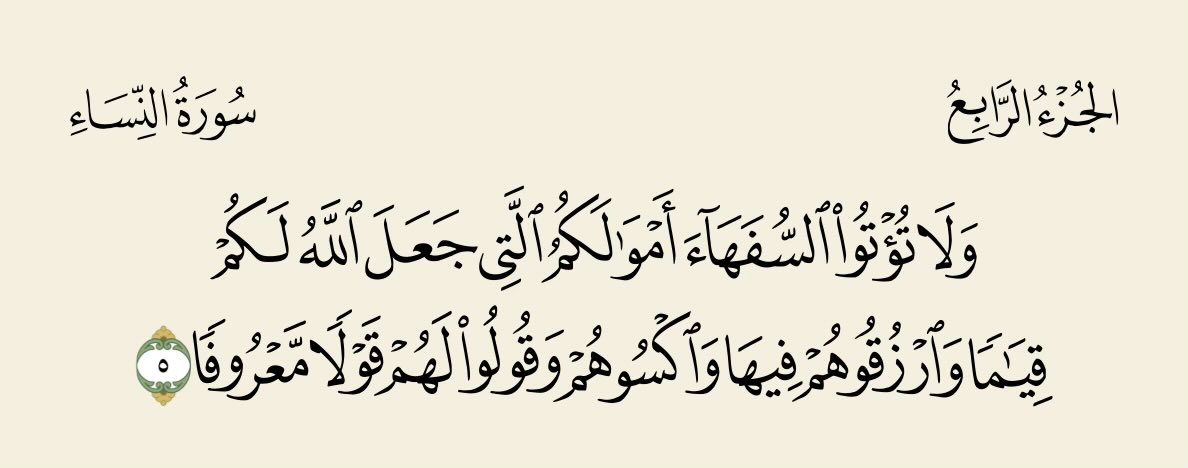 الجُزْءُ الرَّابِعُ
سُورَةُ النِّسَاءِ
وَلَا تُؤْتُوا۟ ٱلسُّفَهَآءَ أَمْوَٰلَكُمُ ٱلَّتِى جَعَلَ ٱللَّهُ لَكُمْ
قِيَـٰمًا وَٱرْزُقُوهُمْ فِيهَا وَٱكْسُوهُمْ وَقُولُوا۟ لَهُمْ قَوْلًا مَّعْرُوفًا ٥